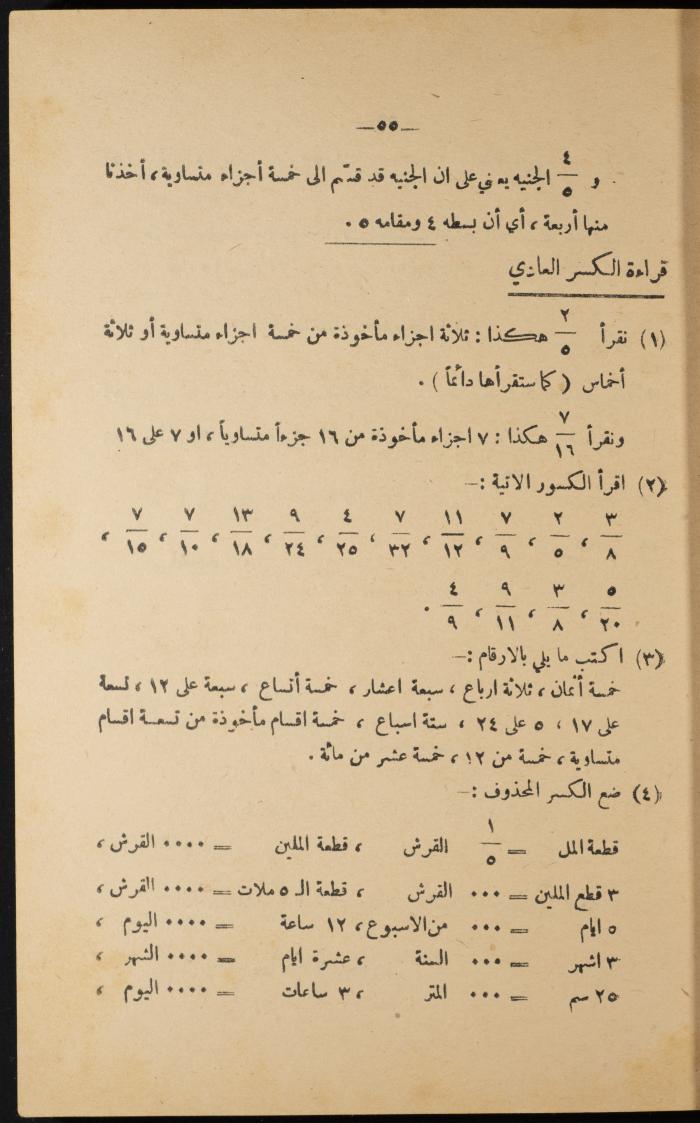 —٥٥—
و ٤/٥ الجنيه يعني على ان الجنيه قد قسّم الى خمسة أجزاء متساوية، أخذنا
منها أربعة، أي أن بسطه ٤ ومقامه ٥.
قراءة الكسر العادي
(١) نقرأ ٢/٥ هكذا: ثلاثة اجزاء مأخوذة من خمسة اجزاء متساوية أو ثلاثة
أخماس (كما ستقرأها دائماً).
ونقرأ ٧/١٦ هكذا: ٧ اجزاء مأخوذة من ١٦ جزءاً متساوياً، او ٧ على ١٦
(٢) اقرأ الكسور الاتية:—
٣/٨، ٢/٥، ٧/٩، ١١/١٢، ٧/٣٢، ٤/٢٥، ٩/٢٤، ١٣/١٨، ٧/١٠، ٧/١٥،
٥/٢٠، ٣/٨، ٩/١١، ٤/٩.
(٣) اكتب ما يلي بالارقام:—
خمسة أثمان، ثلاثة ارباع، سبعة اعشار، خمسة أتساع، سبعة على ١٢، تسعة
على ١٧، ٥ على ٢٤، ستة اسباع، خمسة اقسام مأخوذة من تسعة اقسام
متساوية، خمسة من ١٢، خمسة عشر من مائة.
(٤) ضع الكسر المحذوف:—
قطعة المل = ١/٥ القرش، قطعة الملين = ٠٠٠٠ القرش،
٣ قطع الملين = ٠٠٠ القرش، قطعة الـ ٥ ملات = ٠٠٠٠ القرش،
٥ ايام = ٠٠٠ من الاسبوع، ١٢ ساعة = ٠٠٠٠ اليوم،
٣ اشهر = ٠٠٠ السنة، عشرة ايام = ٠٠٠٠ الشهر،
٢٥ سم = ٠٠٠ المتر، ٣ ساعات = ٠٠٠٠ اليوم،